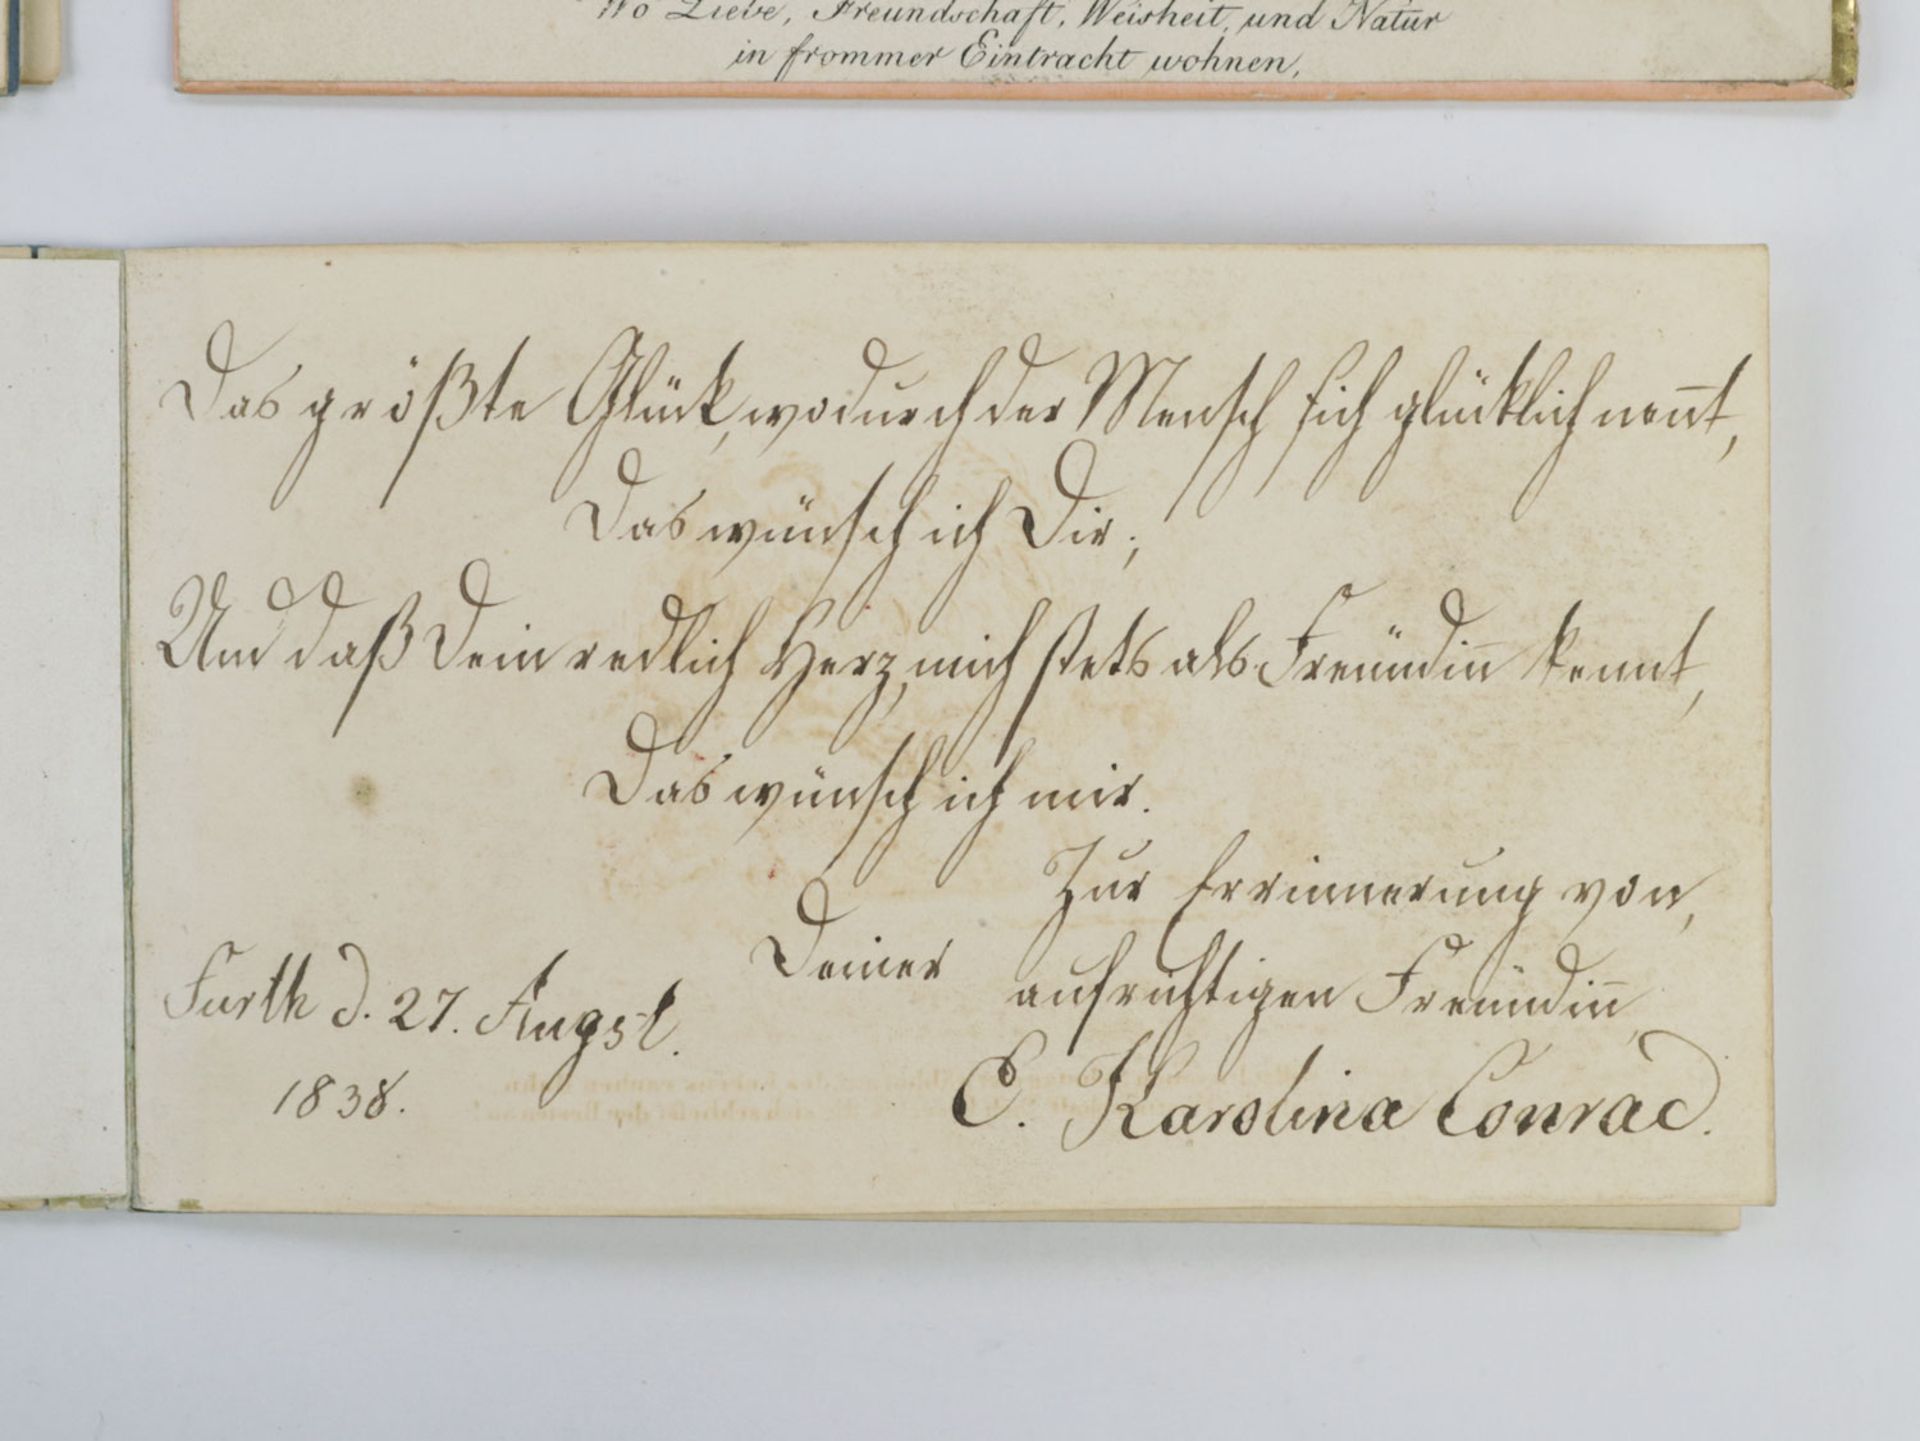 Wo Liebe, Freundschaft, Weisheit, und Natur
in frommer Eintracht wohnen,
Das größte Glück, wodurch der Mensch sich glücklich nen̅t,
Das wünsch ich Dir;
Und daß Dein redlich Herz, mich stets als Freundin̅ kennt,
Das wünsch ich mir.
Zur Errinnerung von,
Deiner aufrichtigen Freundin̅
Furth d. 27. Augst.
1838.
E. Karolina Conrad.